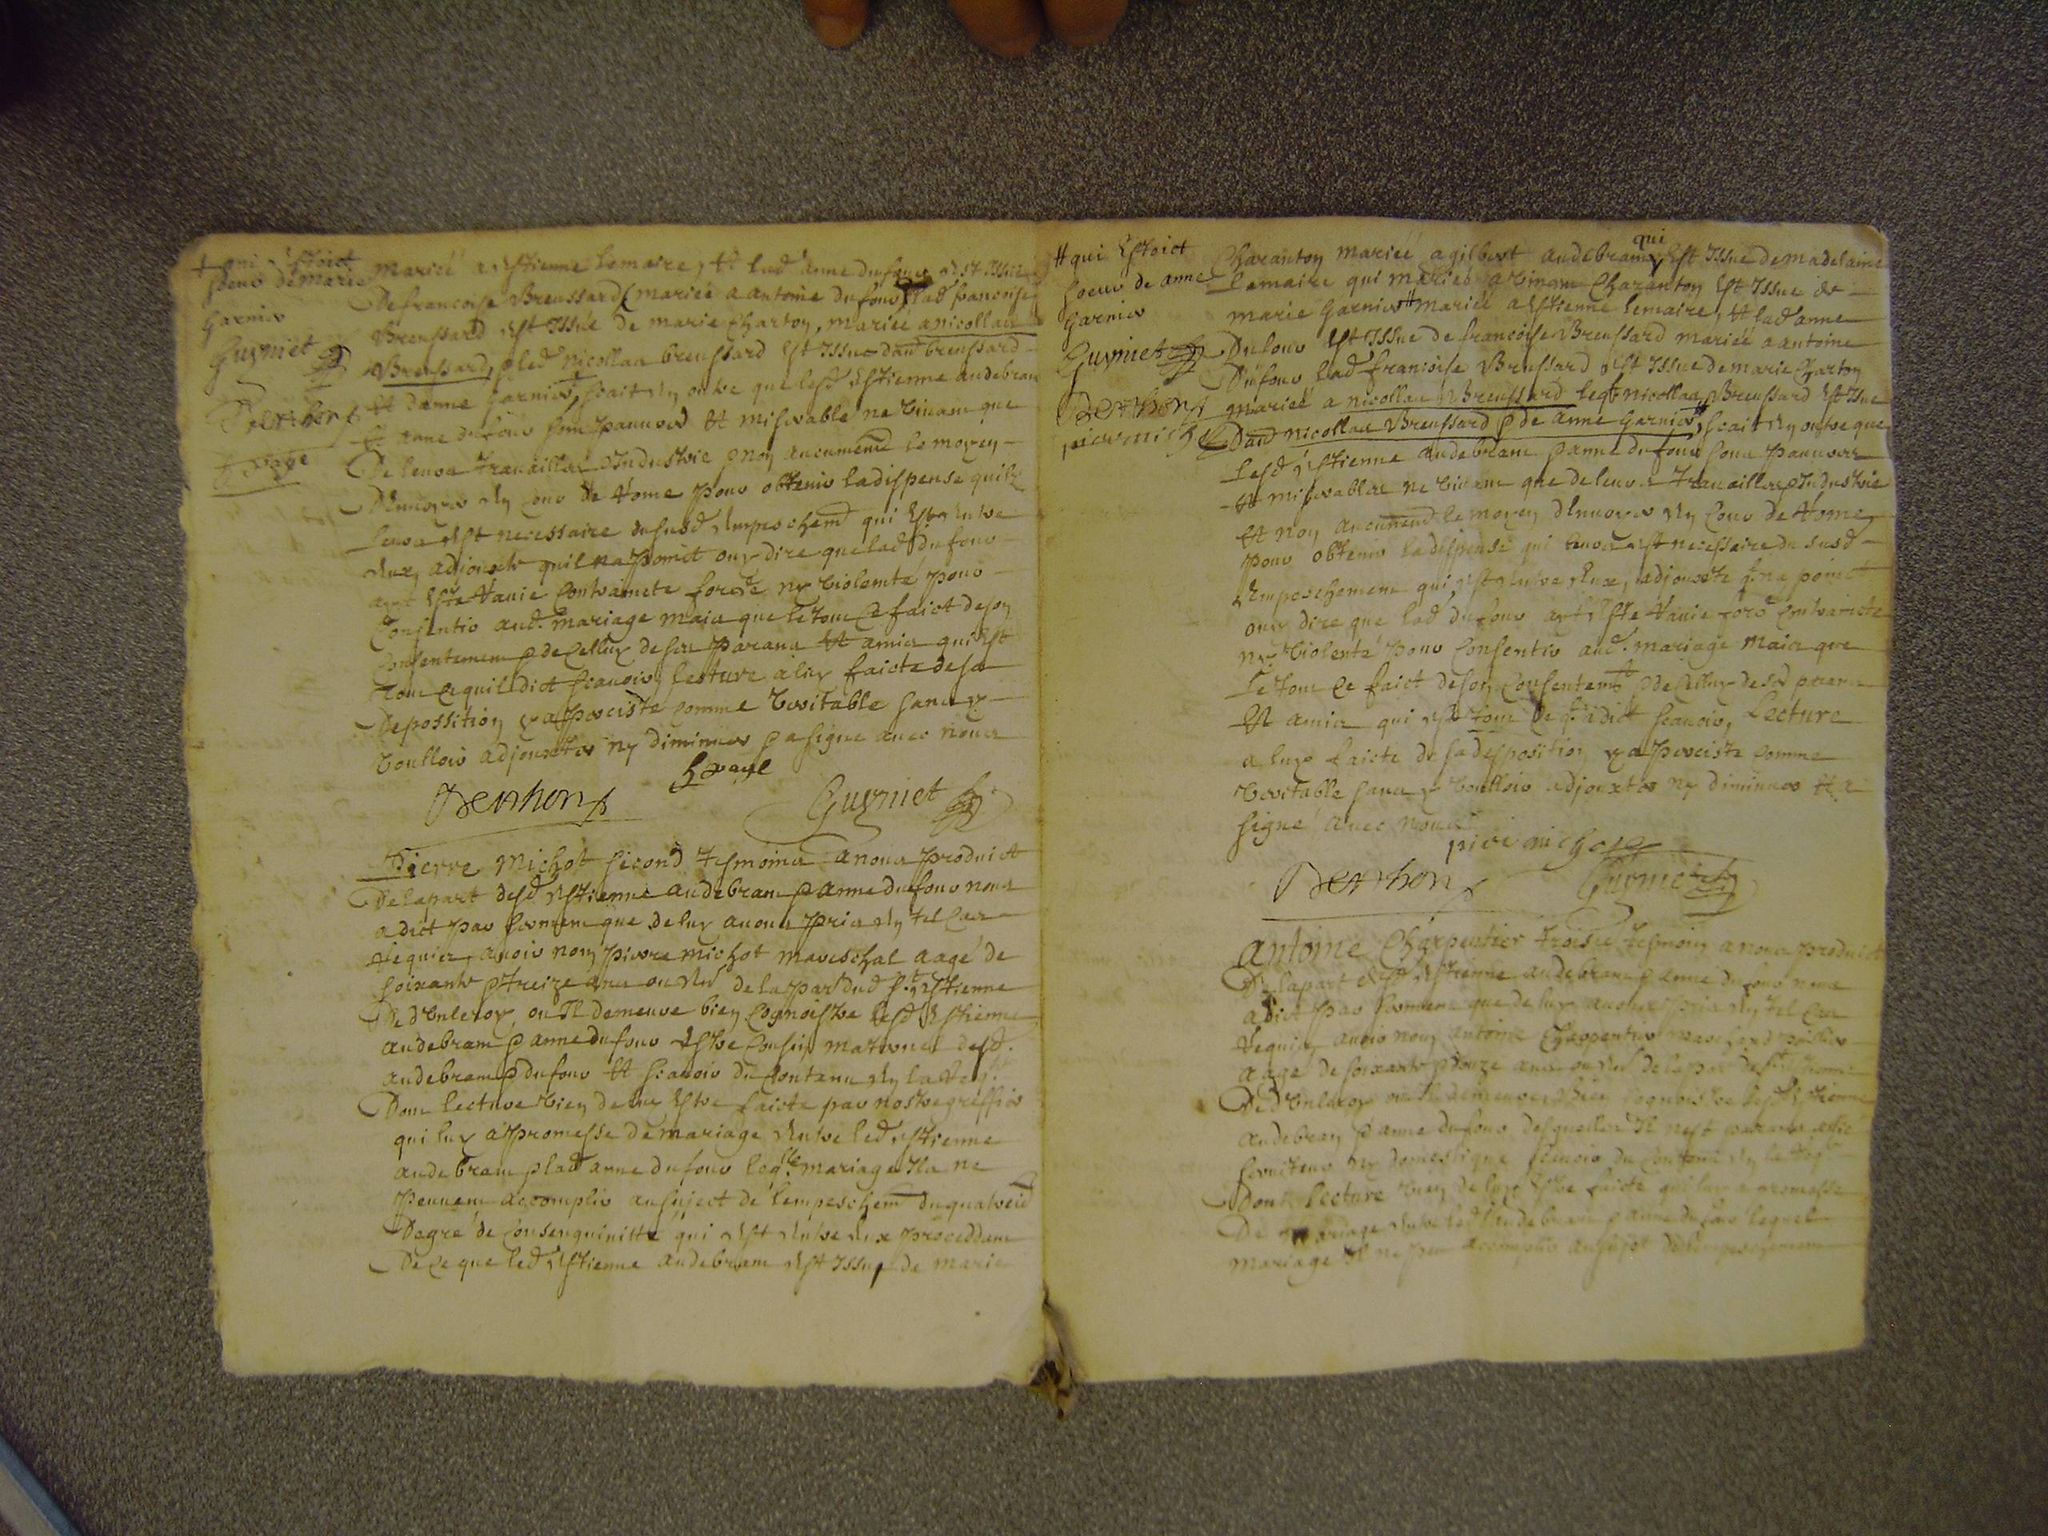 + qui estoict
soeur de marie
Garnier
Guyniet
Berthon
Lepage
mariée a Estienne lemaire, Et lad anne dufour est Issue
De francoise Breussard (mariée a antoine dufour) lad francoise
Breussard est Issue de marie Charton, mariée a nicollas
Breussard, p led nicollas breussard est Issue daud breussard
Et danne Garnier, scait En oultre que lesd Estienne audebram
Et anne dufour sont pauvres Et miserable ne vivant que
De leurs travailles p Industrie p non aucunemt le moyen
Denvoyer En cour de Rome pour obtenir la dispense quil
leurs est necessaire dusus.d Empeschemt qui est entre
eux, adjouste quil na point ouy dire que lad dufour
ayt este Ravie contraincte forcée ny violemté pour
Consentir aud. mariage mais que le tout ce faict de son
Consentement p de celluy de ses parans Et amis qui est
tout ce quil dict scavoir, lecture a luy faicte de sa
Depossition y a perciste comme veritable sans y
voulloir adjouxter ny diminuer p a signe avec nous
Lepage
Berthon Guyniet
Pierre Michot second tesmoins a nous produict
De la part desd Estienne audebram p anne dufour nous
a dict par serment que de luy avons pris En tel cas
requis, avoir nom pierre michot mareschal aagé de
soixante p treize ans ou En de la par dud St Estienne
De dunleroy, ou Il demeure bien cognoistre lesd Estienne
audebram p anne dufour Estre cousin desd.
audebram p dufour Et scavoir du contenu En la Req.
Dont lecture vien de luy Estre faicte par nostre greffier
qui luy a promesse de mariage Entre led Estienne
audebram p lad anne dufour leqle mariage Ils ne
peuvent accomplir au suject de lempeschemt du quatreid
Degré de Consenguinitté qui est entre eux proceddent
De ce que led Estienne audebram est Issu de marie
# qui Estoict
soeur de anne
Garnier
Guyniet
Berthon
piere michot
Charanton mariée a gilbert audebram, qui Est Issue de madelaine
lemaire qui mariée a Charanton est Issue de
marie Garnier # mariée a Estienne lemaire, Et lad anne
Dufour est Issue de francoise Breussard mariée a antoine
Dufour lad francoise Breussard est Issue de marie Charton
mariée a nicollas Breussard leqt nicollas Breussard est Issue
Daud nicollas Breussard p de anne Garnier, scait En oultre que
lesd Estienne audebram p anne dufour sont pauvres
Et miserables ne vivant que de leurs travailles p Industrie
Et non aucunemt le moyen denvoyer En Cour de Rome
pour obtenir la dispense qui leurs est necessaire du susd
Empeschement qui est entre eux, adjouxte q. na point
ouy dire que lad dufour ayt este Ravie forcé contraincte
ny violenté pour Consentir aud. mariage mais que
le tout ce faict de son consentemt p de Celluy desd parens
Et amis qui est tout ce q. a dict scavoir, Lecture
a luy faicte de sa desposition y a perciste comme
veritable sans y voulloir adjouxter ny diminuer Et a
signé avec nous
piere michot
Berthon Guyniet
antoine Charpentier troisie tesmoin a nous produict
De la part desd Estienne audebram p anne dufour nous
a dict par serment que de luy avons pris En tel cas
requis, avoir nom antoine Charpentier marchand
aage de soixante p douze ans ou En de la par de St Estienne
De dunleroy ou Il demeure, bien cognoistre lesd Estienne
audebram p anne dufour desquelles Il nest parans allié
serviteur ny domestique scavoir du contenu En la Req
Dont lecture vien de luy Estre faicte qui luy a promesse
De mariage entre led audebram p anne dufour lequel
mariage Il ne peu accomplir au sujet de lempeschement